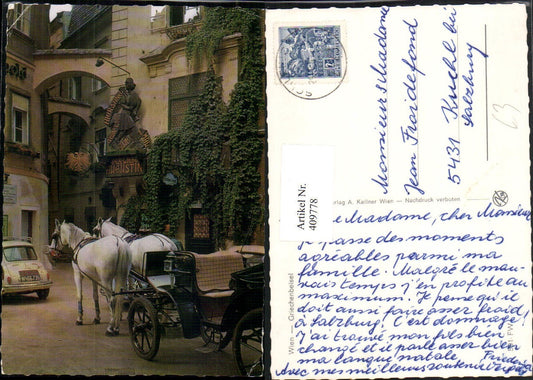 Monsieur & Madame
Jean Froidefond
5431 Kuchl bei
Salzburg
63
Artikel Nr.
409778
rlag A. Kellner Wien — Nachdruck verboten
Wien — Griechenbeisel
e Madame, cher Monsieur
je passe des moments
agréables parmi ma
famille. Malgré le mau-
vais temps j'en profite au
maximum. Je pense qu'il
doit aussi faire assez froid
à Salzburg. C'est dommage!
J'ai trouvé mon fils bien
changé et il parle assez bien
ma langue natale.
Avec mes meilleurs souvenirs